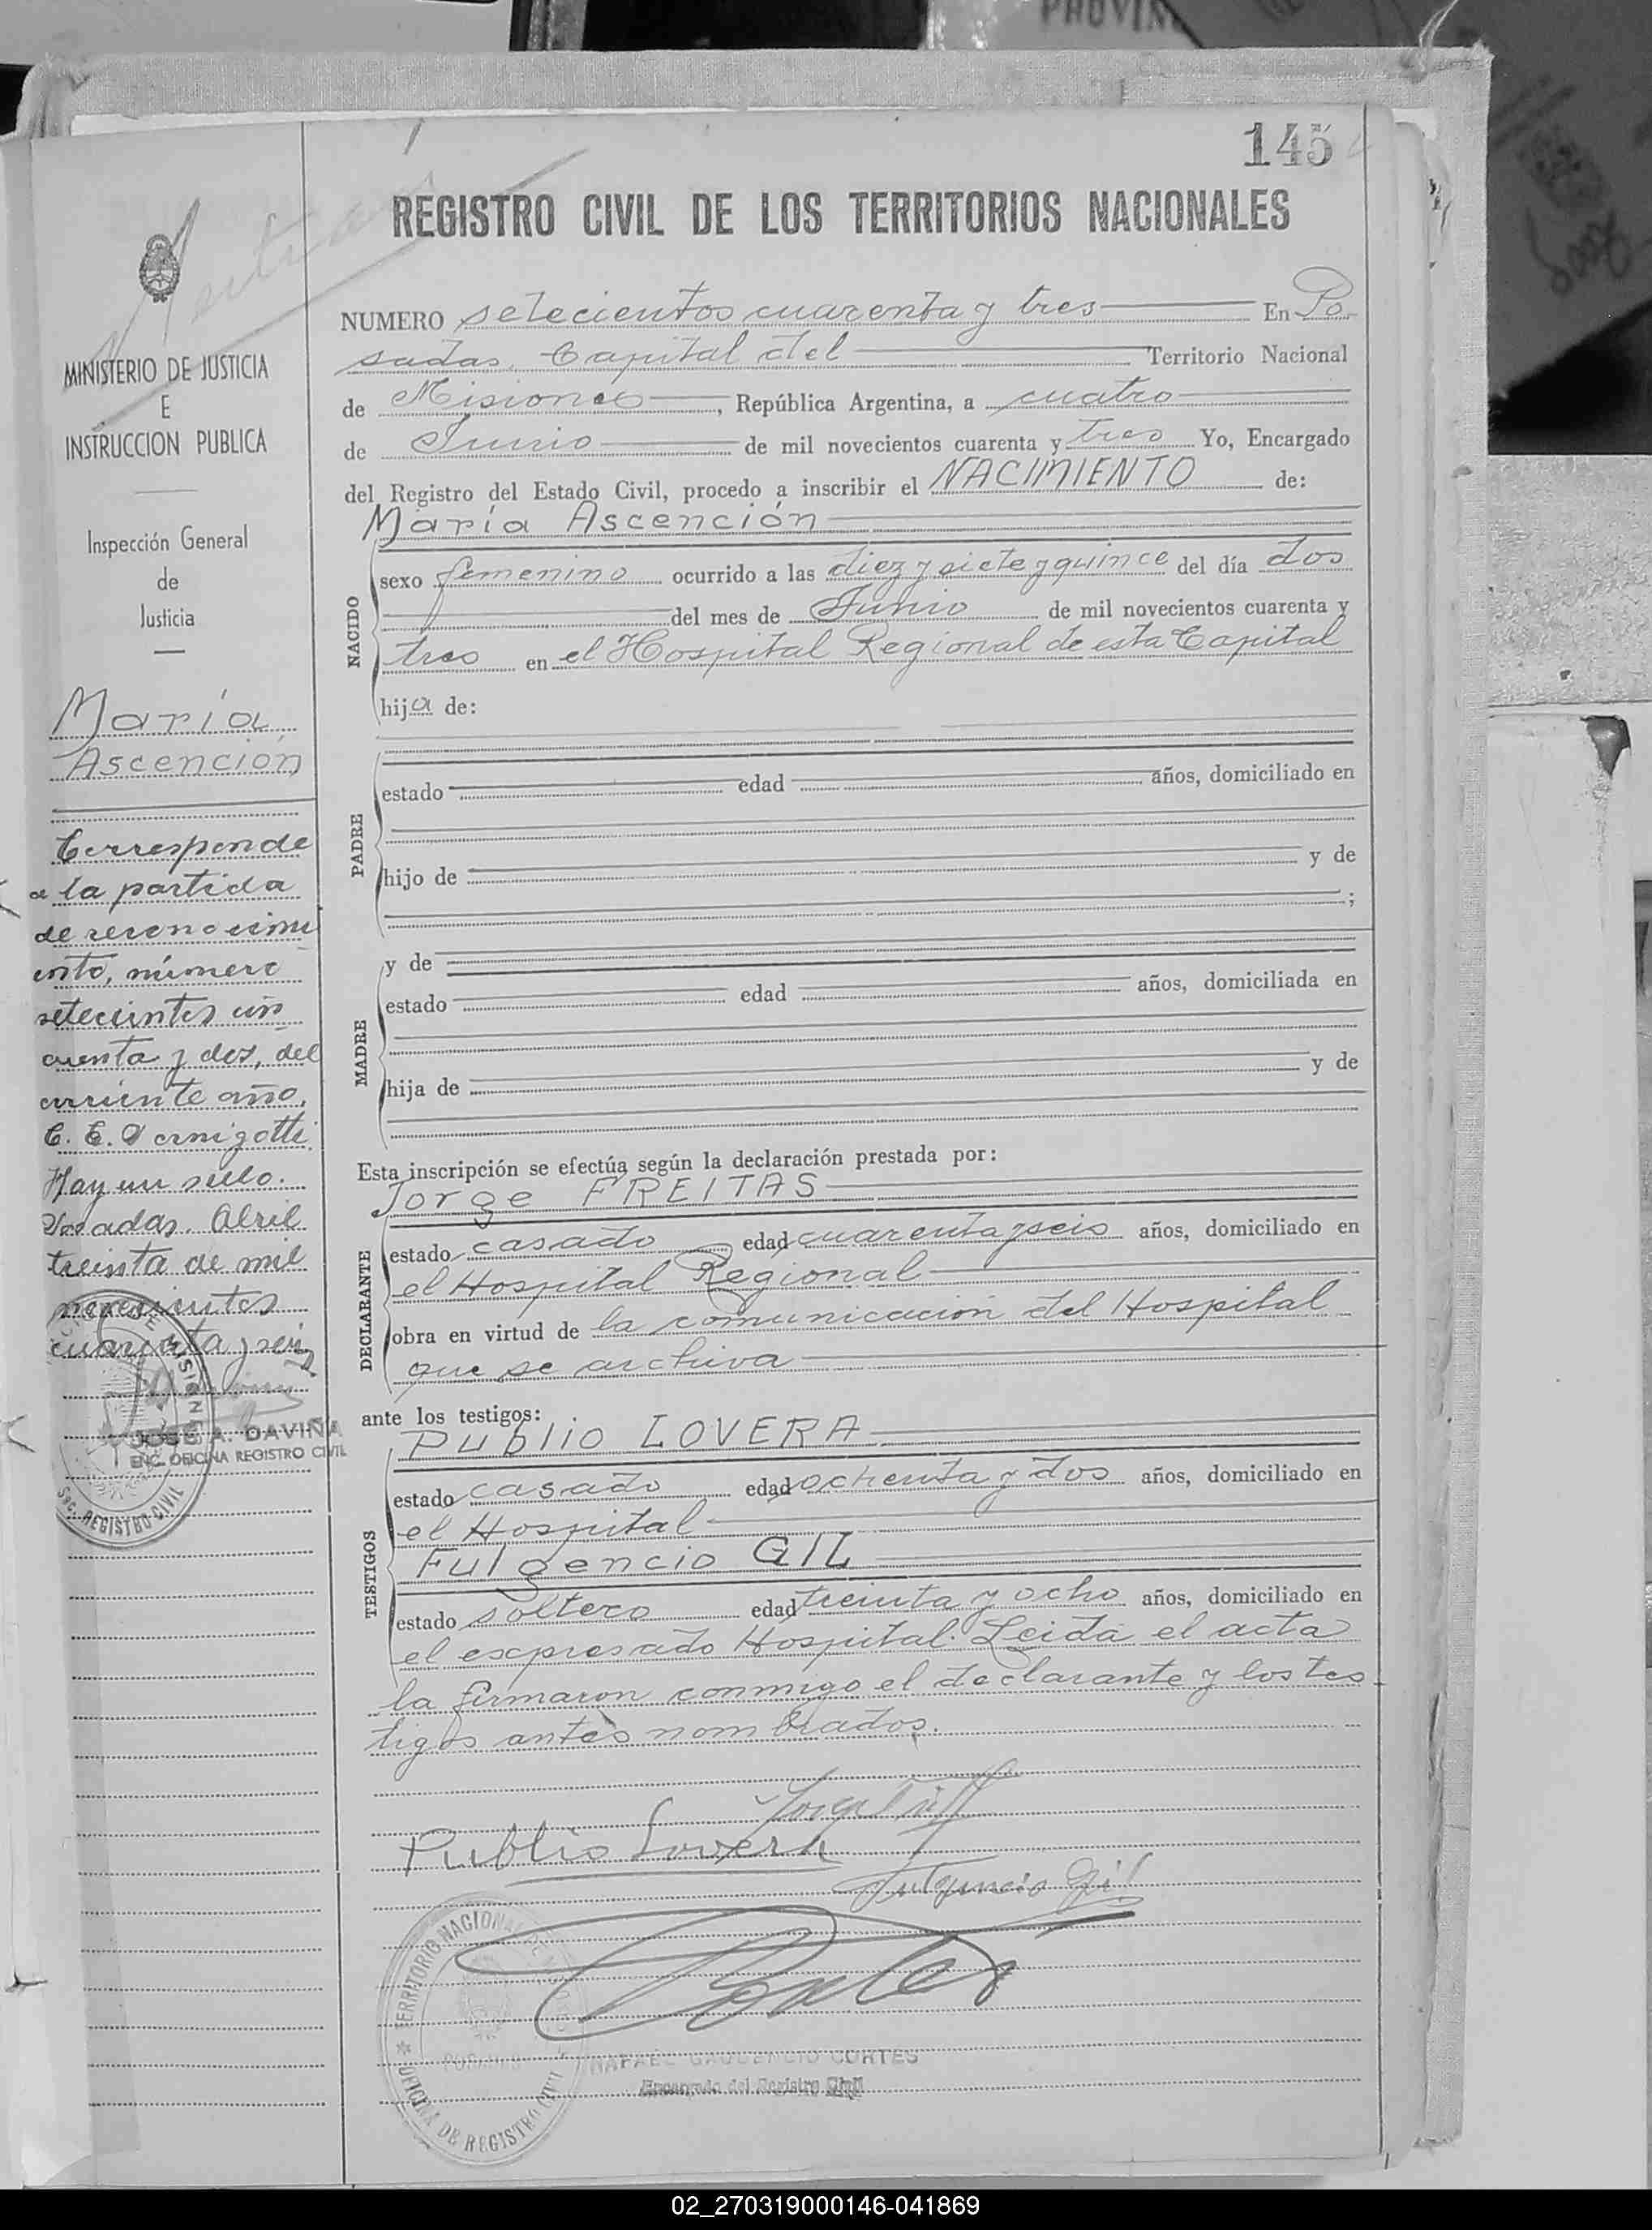 PROVIN
145
REGISTRO CIVIL DE LOS TERRITORIOS NACIONALES
MINISTERIO DE JUSTICIA
E
INSTRUCCION PUBLICA
Inspección General
de
Justicia
María
Ascención
Corresponde
a la partida
de reconocimi
ento, número
setecientos cin
cuenta y dos, del
corriente año.
C. E.
Hay un sello.
Posadas. Abril
treinta de mil
novecientos
cuarenta y seis
JOSE A. DAVIÑA
ENC. OFICINA REGISTRO CIVIL
DE MISIONES
Sec. REGISTRO CIVIL
NUMERO setecientos cuarenta y tres En Po
sadas, Capital del Territorio Nacional
de Misiones, República Argentina, a cuatro
de Junio de mil novecientos cuarenta y tres Yo, Encargado
del Registro del Estado Civil, procedo a inscribir el NACIMIENTO de:
María Ascención
NACIDO
sexo femenino ocurrido a las diez y siete y quince del día dos
del mes de Junio de mil novecientos cuarenta y
tres en el Hospital Regional de esta Capital
hija de:
PADRE
estado edad años, domiciliado en
hijo de y de
;
MADRE
y de
estado edad años, domiciliada en
hija de y de
Esta inscripción se efectúa según la declaración prestada por:
Jorge FREITAS
DECLARANTE
estado casado edad cuarenta y seis años, domiciliado en
el Hospital Regional
obra en virtud de la comunicación del Hospital
que se archiva
ante los testigos:
Publio LOVERA
TESTIGOS
estado casado edad ochenta y dos años, domiciliado en
el Hospital
Fulgencio GIL
estado soltero edad treinta y ocho años, domiciliado en
el expresado Hospital. Leida el acta
la firmaron conmigo el declarante y los tes
tigos antes nombrados.
Publio Lovera
Fulgencio Gil
TERRITORIO NACIONAL DE
POSADAS
OFICINA DE REGISTRO CIVIL
RAFAEL GAUDENCIO CORTES
Encargado del Registro Civil
02_270319000146-041869